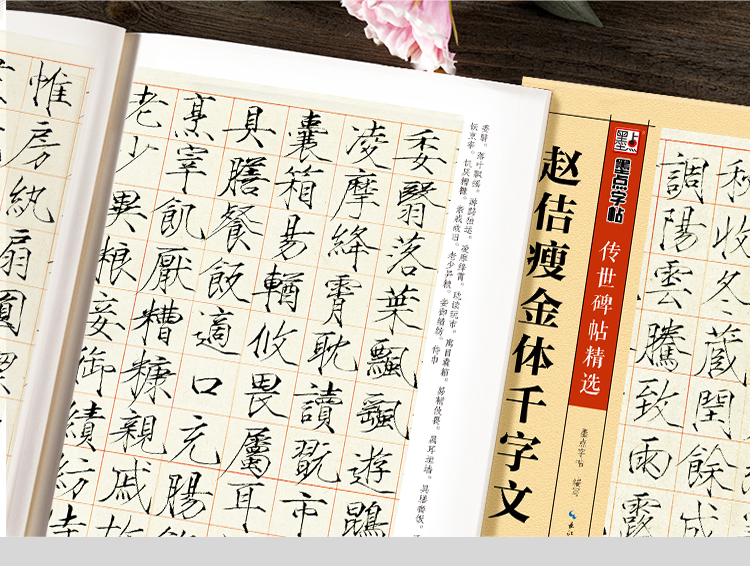 委翳落葉飄颻遊鵾
凌摩絳霄耽讀翫市
囊箱易輶攸畏屬耳
具膳餐飯適口充腸
烹宰飢厭糟糠親戚
老少異粮妾御績紡侍
惟房紈扇圓潔
委翳。落叶飘摇。游鹍独运。凌摩绛霄。耽读玩市。寓目囊箱。易輶攸畏。属耳垣墙。具膳餐饭。
饫烹宰。饥厌糟糠。亲戚故旧。老少异粮。妾御绩纺。侍巾
墨点
墨点字帖
传世碑帖精选
赵佶瘦金体千字文
墨点字帖 编写
长江
秋收冬藏閏餘成
調陽雲騰致雨露